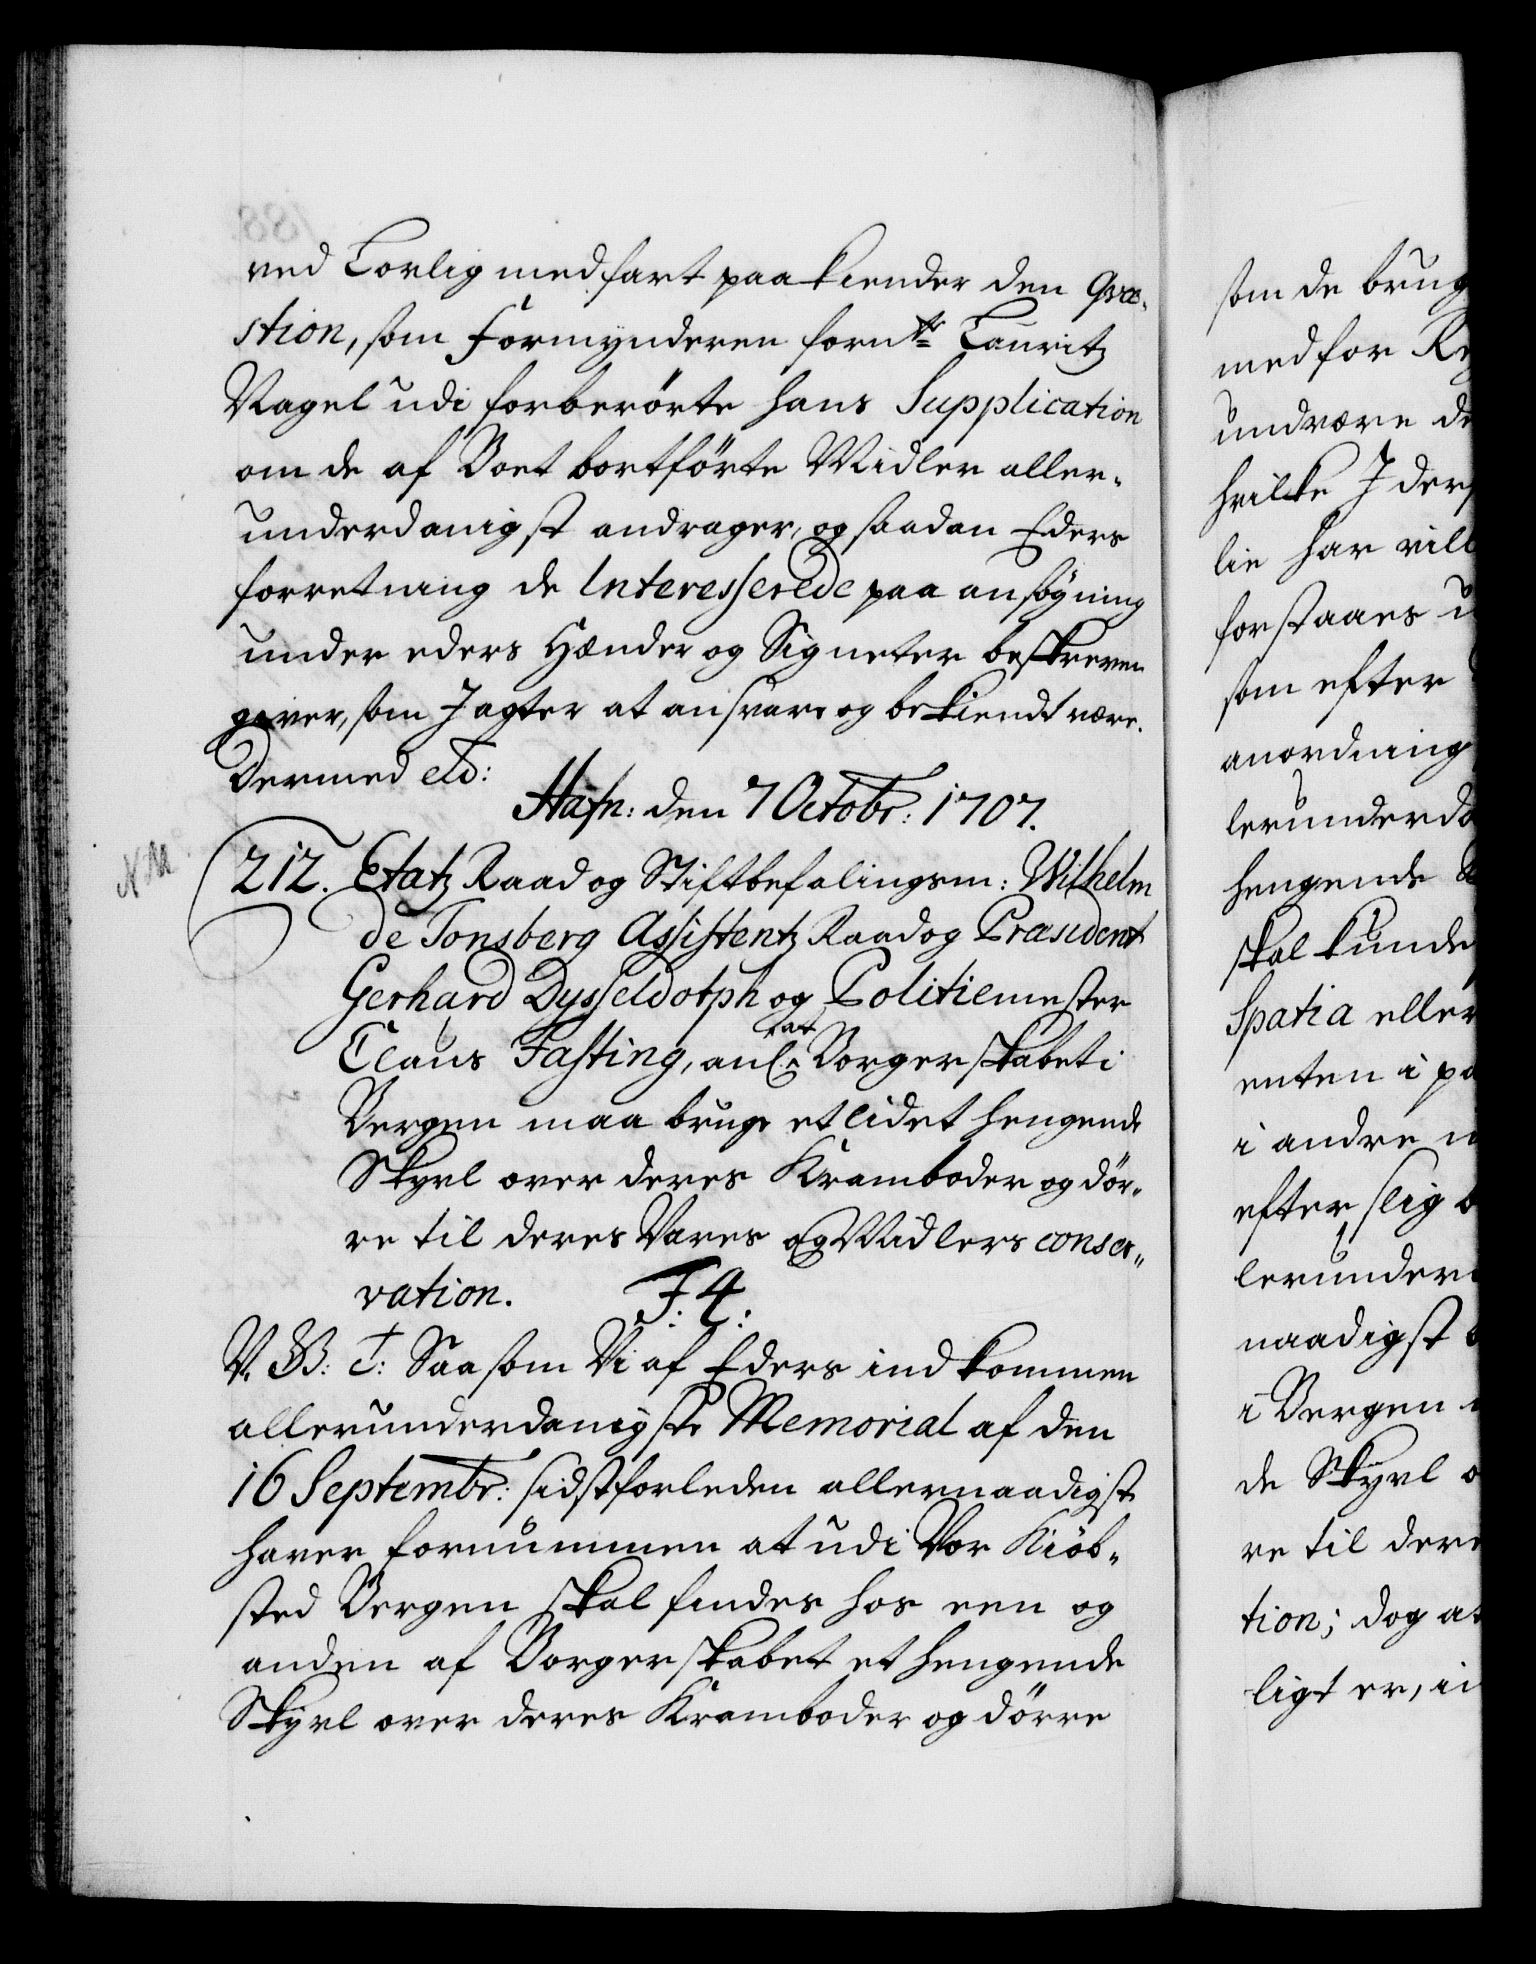 ved Lovlig medfart paakiender den Qvæ-
stion, som Formynderen fornte Lauritz
Nagel udi forberørte hans Supplication
om de af Boet bortførte Midler aller-
underdanigst andrager, og saadan Eders
forretning de Interesserede paa ansøgning
under eders Hænder og Signeter beskreven
giver, som I agter at ansvare og bekiendt være.
Dermed etc:
Hafn: den 7 Octobr: 1707.
NM
212. Etatz Raad og Stiftbefalingsm: Wilhelm
de Tonsberg Assistentz Raad og Præsident
Gerhard Dysseldorph og Politiemester
Claus Fasting, anl: at Borgerskabet i
Bergen maa bruge et lidet hengende
Skyul over deres Kramboder og dör-
re til deres Vares og Midlers conser-
vation. F: 4:
V. G: T: Saasom Vi af Eders indkommen
allerunderdanigste Memorial af den
16 Septembr: sidstforleden allernaadigste
haver fornummen at udi Vor Kiøb-
sted Bergen skal findes hos een og
anden af Borgerskabet et hengende
Skyul over deres Kramboder og dörre
som de brug
medfor Re
undvære de
hvilke I der
lie har vill
forstaaes u
som efter
anordning
lerunderda
hengende
skal kunde
Spatia eller
enten i pa
i andre
efter slig
lerunder
naadigst
i Bergen
de Skyul o
re til dere
tion; dog at
ligt er, i